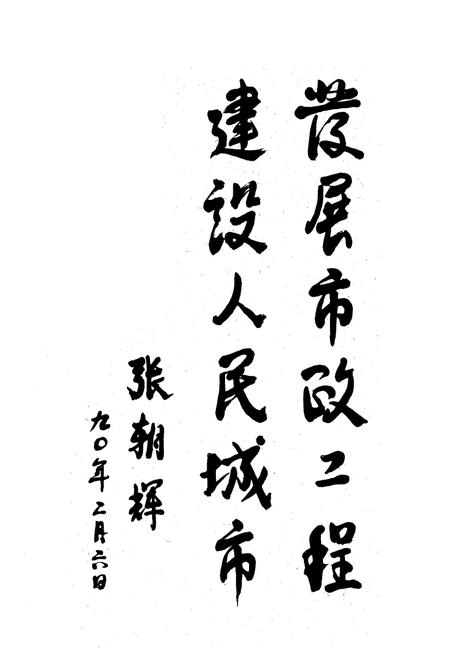 發展市政工程
建設人民城市
张朝辉
九〇年二月六日